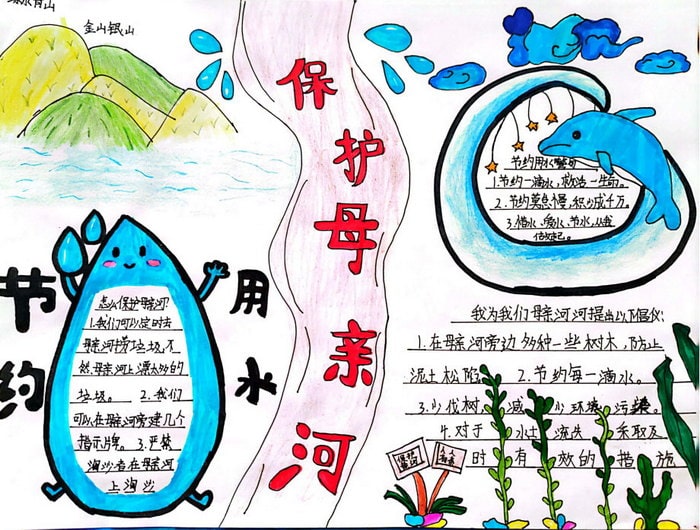 绿水青山
金山银山
保护母亲河
节约
用水
怎么保护母亲河?
1.我们可以定时去
母亲河捞垃圾,不
然母亲河上漂太多的
垃圾。 2.我们
可以在母亲河旁建几个
指示牌。3.严禁
淘沙者在母亲河
上淘沙
节约用水
1.节约一滴水,救活一生命。
2.节约莫怠慢,积少成千万。
3.惜水、爱水、节水,从我
做起。
我为我们母亲河河提出以下倡仪:
1.在母亲河旁边多种一些树木,防止
泥土松陷 2.节约每一滴水。
3.少伐树 减少环境污染。
4.对于水土流失采取及
时有效的措施
保护